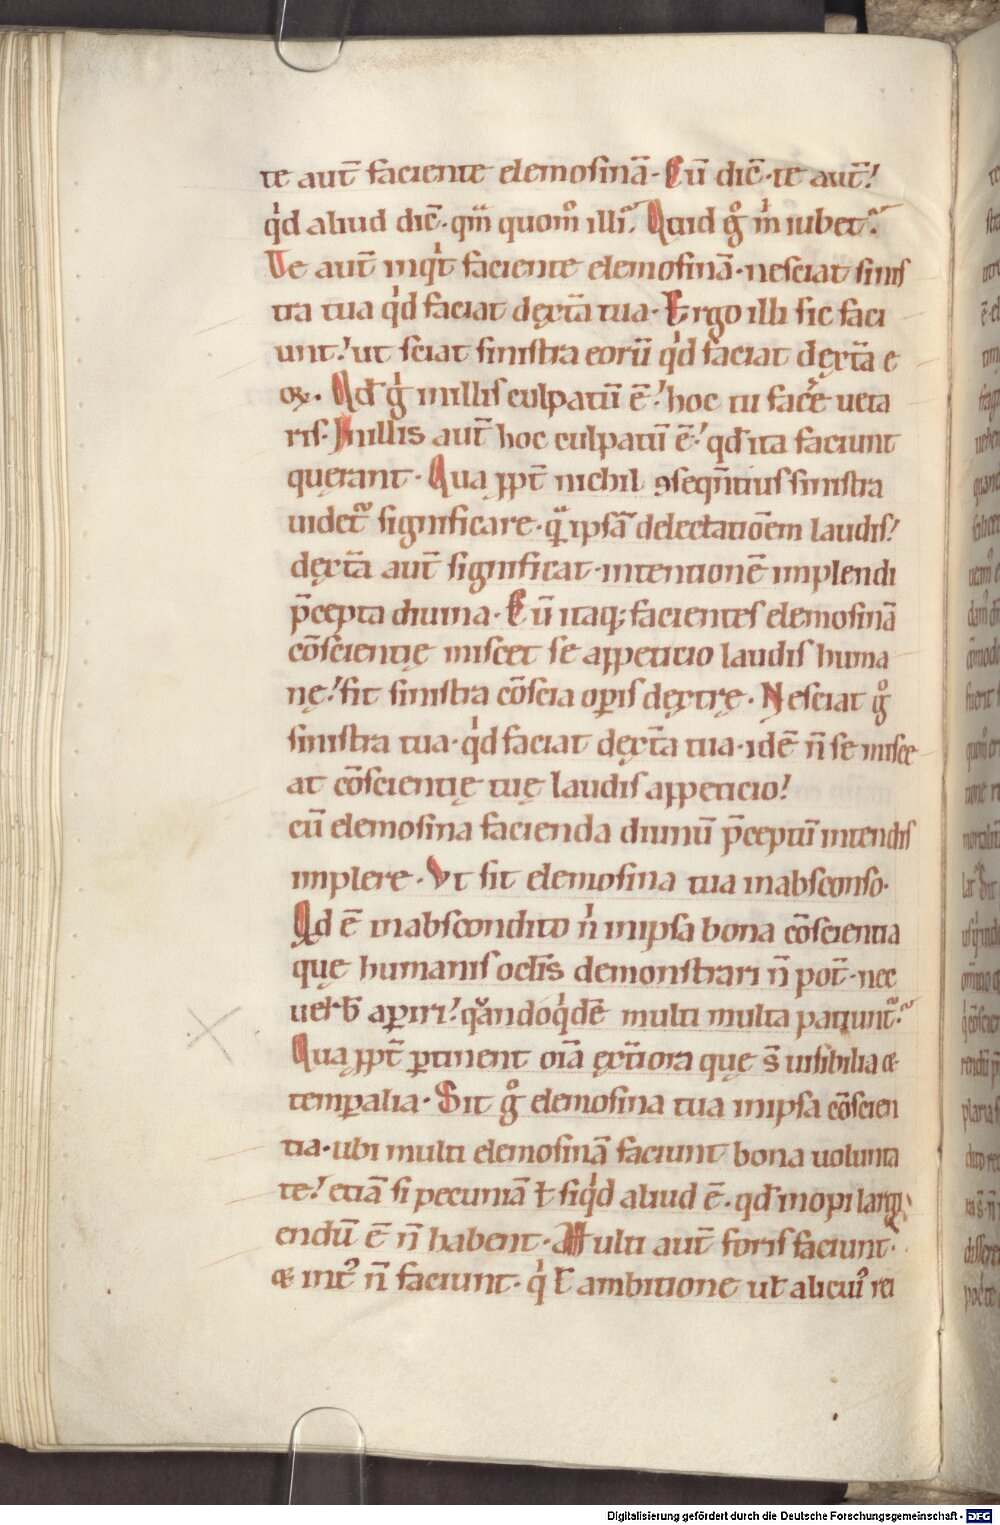 te aut̄ faciente elemosinā. Cū dic̄. te aut̄?
qͥd aliud dic̄. qm̄ quomͦ illi? Quid gͦ m̄ iubet?
Te aut̄ inqͥt faciente elemosinā. nesciat sinis
tra tua qͥd faciat dęxt̄a tua. Ergo illi sic faci
unt? ut sciat sinistra eorū qͥd faciat dęxt̄a e
oꝝ. Qd̄ gͥ inillis culpatū ē? hoc tu facͤe ueta
ris. Inillis aut̄ hoc culpatū ē? qd̄ ita faciunt
quęrant. Qua ꝓpt̄ nichil ꝯseqn̄tius sinistra
uidet᷑ significare. qͣ̄ ipsā delectatiōem laudis?
dęxt̄a aut̄ significat. intentionē implendi
p̄cepta diuina. Cū itaq; facientes elemosinā
cōscientię miscet se appetitio laudis huma
nę? fit sinistra cōscia oꝑis dęxtrę. Nesciat gͦ
sinistra tua. qͥd faciat dęxt̄a tua. idē n̄ se misce
at cōscientię tuę laudis appeticio?
cū elemosina facienda diuinū p̄ceptū intendis
implere. Vt sit elemosina tua inabsconso.
Qd ē inabscondito nͥ inipsa bona cōscientia
quę humanis oclis̄ demonstrari n̄ pot̄. nec
uerb̄ aꝑiri? qͣndoqͥdē multi multa patiunt᷑.
Qua ꝓpt̄ ꝑtinent oīa ęxt̄iora quę s̄ uisibilia &
temꝑalia. Sit gͦ elemosina tua inipsa cōscien
tia. ubi multi elemosinā faciunt bona uolunta
te? etiā si pecuniā ł siqͥd aliud ē. qd̄ inopi largi
endū ē n̄ habent. Multi aut̄ foris faciunt.
& intꝰ n̄ faciunt. qͥ ł ambitione uł alicuiꝰ rei